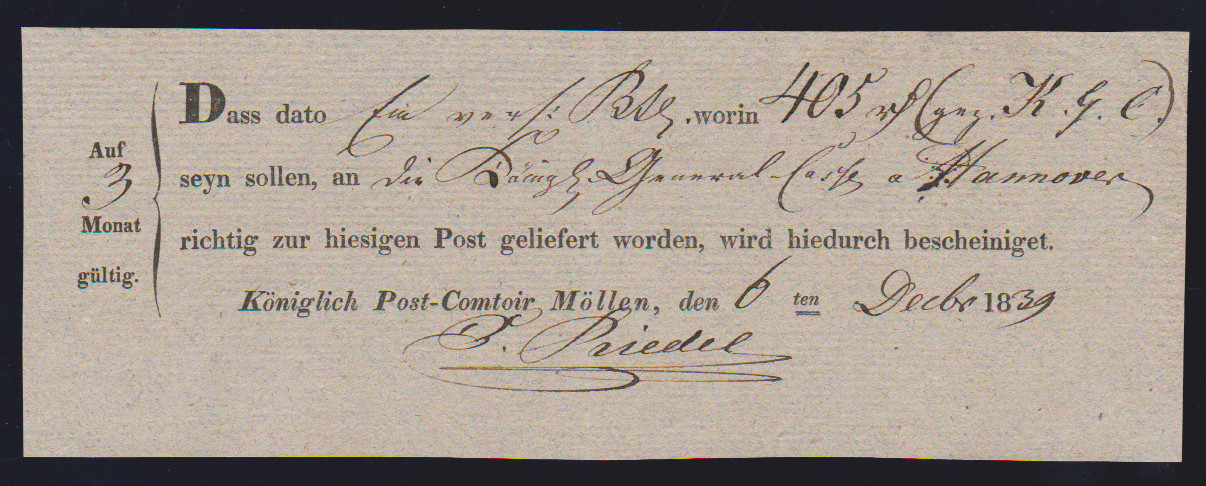 Auf
3
Monat
gültig.
Dass dato Ein vers: worin 405 (gez. K. G. C.)
seyn sollen, an die Königl. General-Casse a Hannover
richtig zur hiesigen Post geliefert worden, wird hiedurch bescheiniget.
Königlich Post-Comtoir Möllen, den 6 ten Decbr 1839
Riedel